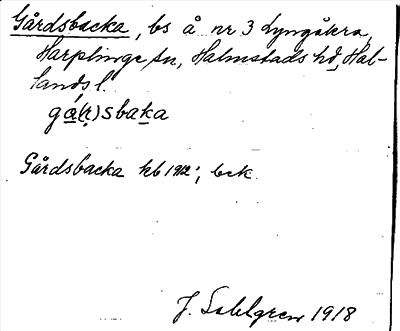 Gårdsbacka, bs å nr 3 Lyngåkra,
Harplinge sn, Halmstads hd, Hal-
lands l.
gå(r)sbaka
Gårdsbacka kb 1912; bek.
J. Sahlgren 1918